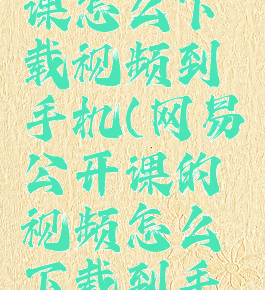 课怎么下
载视频到
手机(网易
公开课的
视频怎么
下载到手